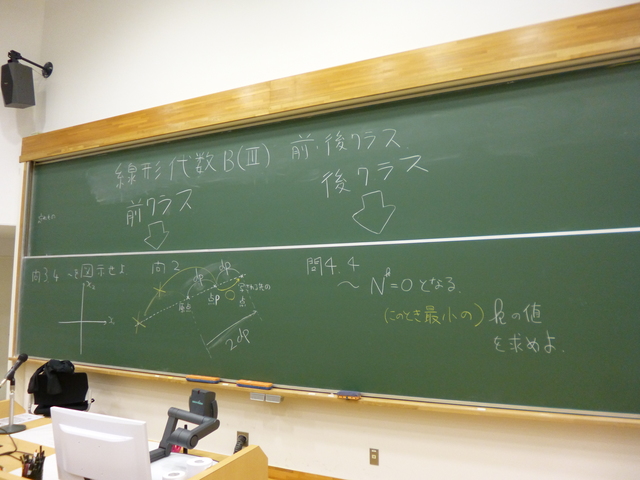 線形代数B(Ⅲ) 前・後クラス
前クラス
後クラス
問3.4 〜を図示せよ
問2
dp
dp
原点
点P
点
2dp
問4.4
〜 N^k=0となる.
(このとき最小の) kの値
を求めよ.